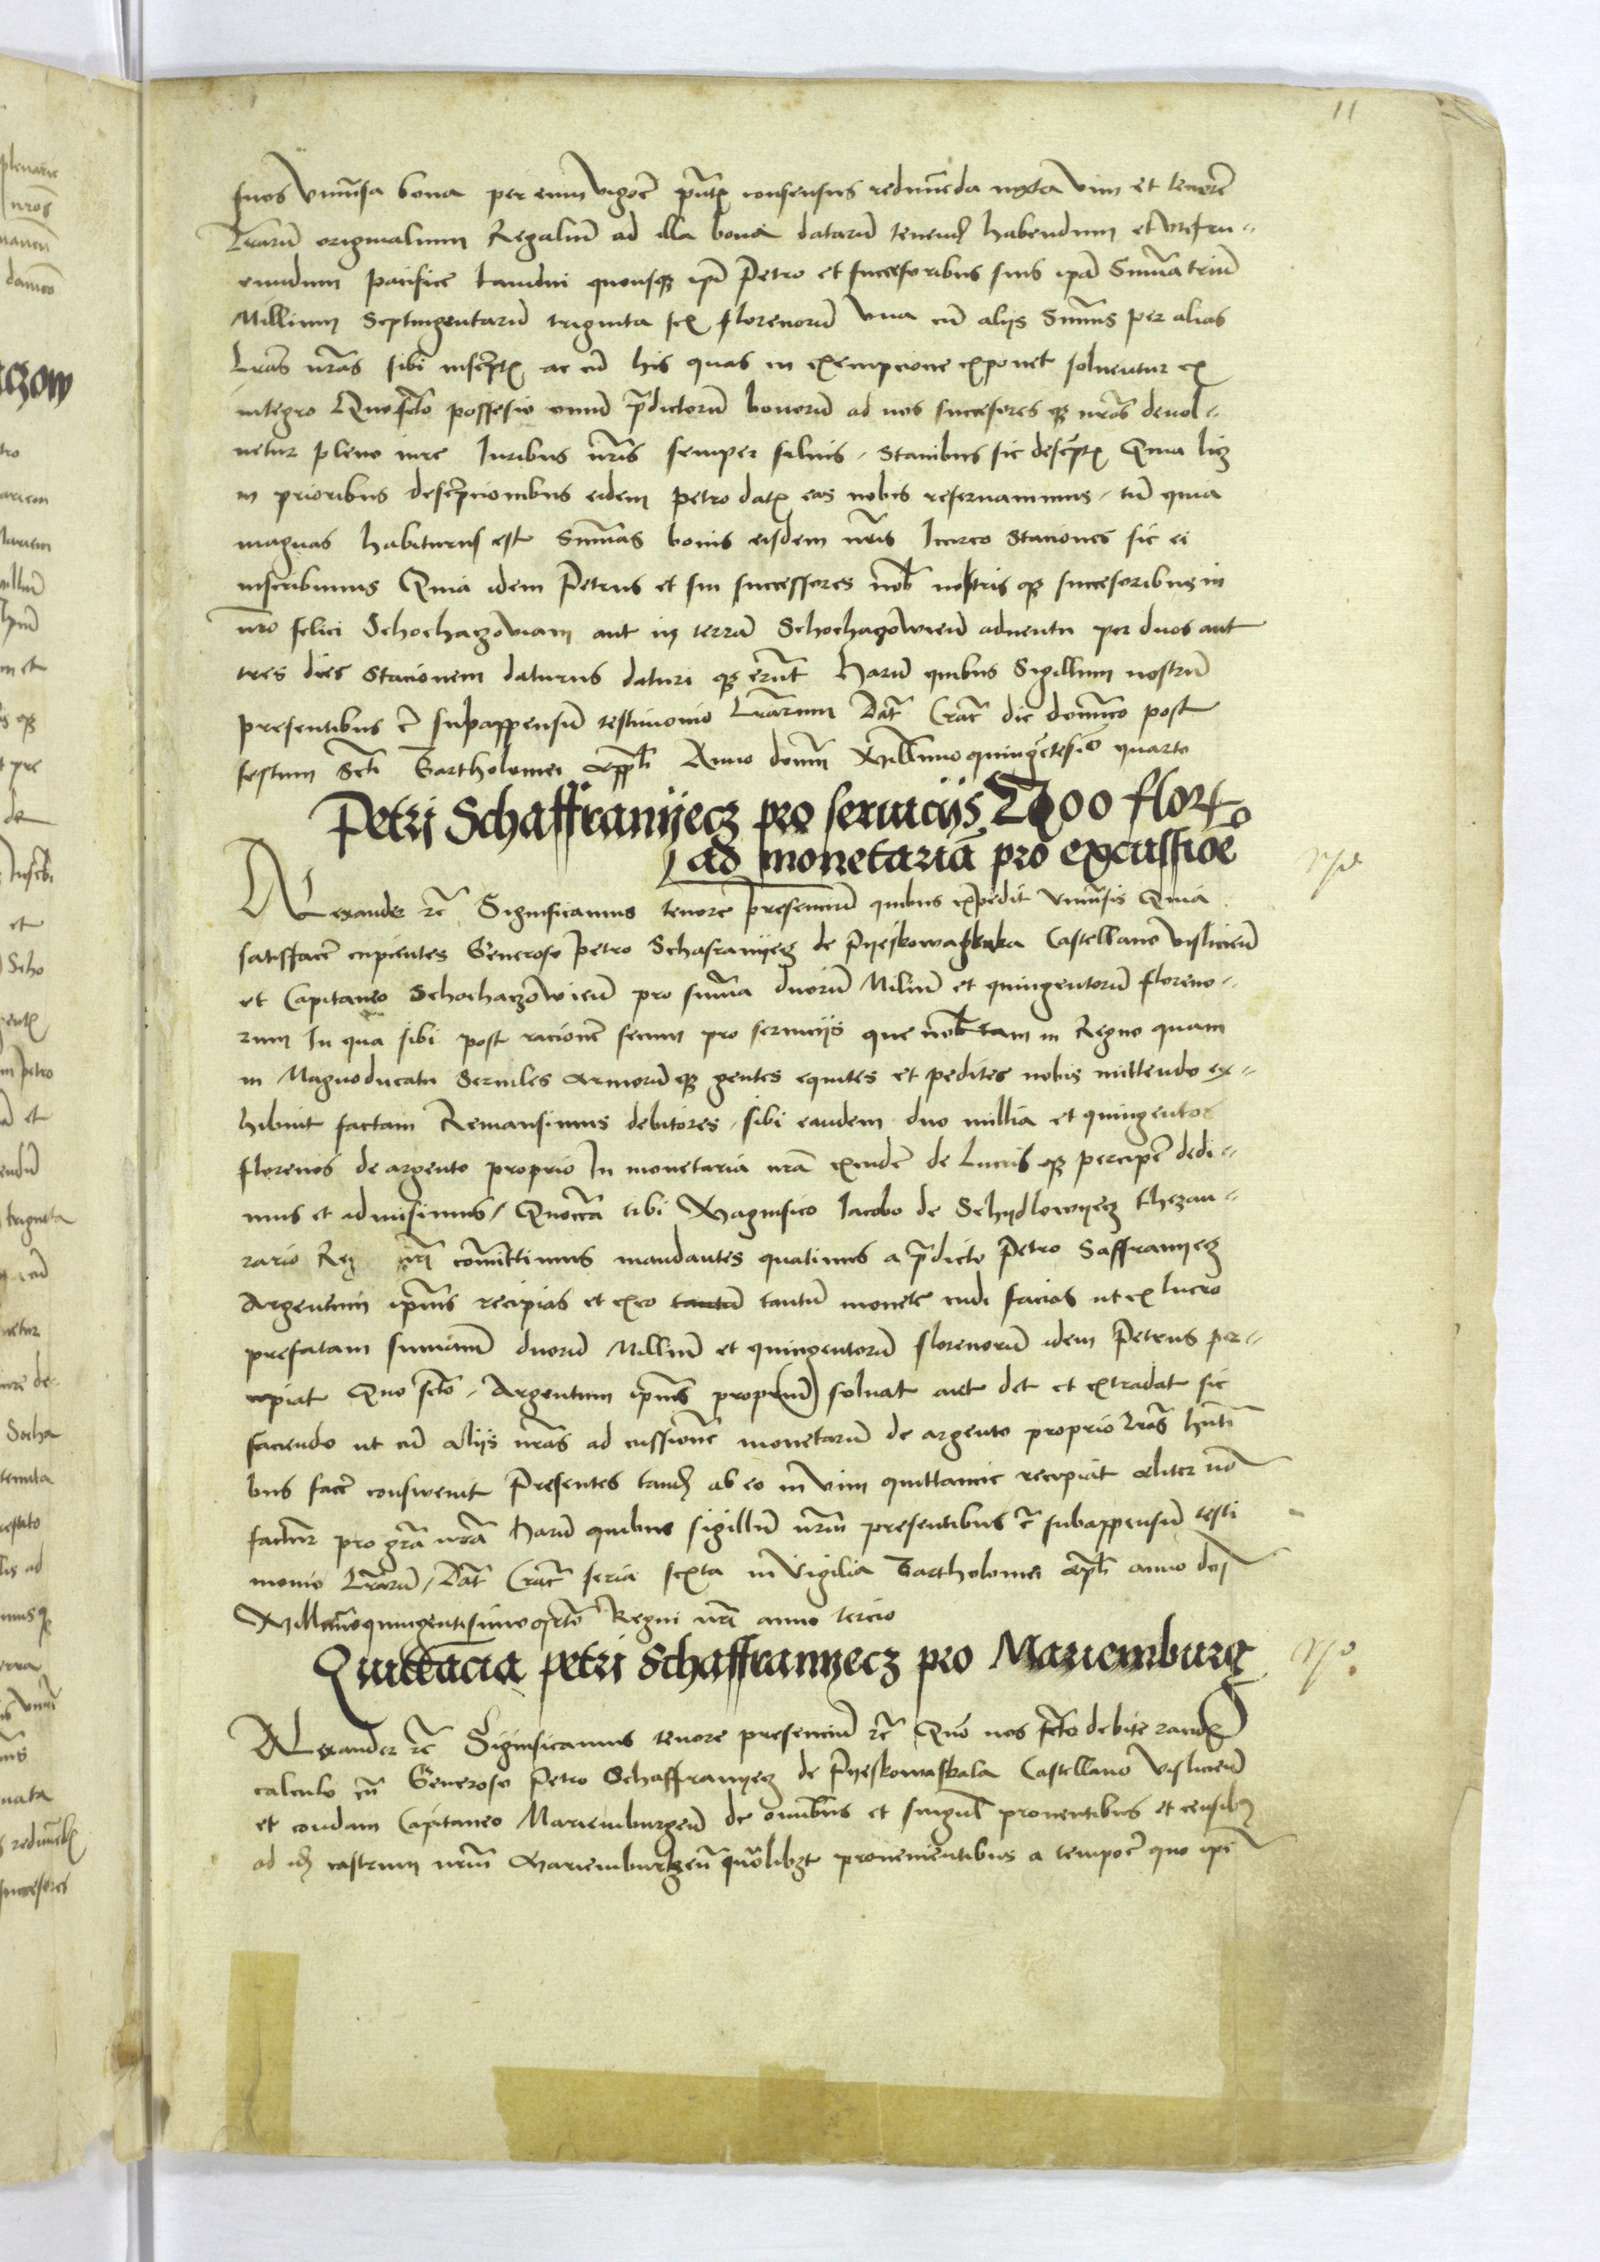 11
suos universa bona per eum vigore pñtis consensus redimeda iuxta vim et tenorẽ
Lrarũ originalium Regaliũ ad illa bona datarũ tenend habendum et utifru-
endum pacifice tamdiu quousq ipi Petro et successoribus suis ipa Summa triũ
Millium Septingentarũ triginta sex florenorũ una cũ alijs Summis per alias
Lras nras sibi inscriptis ac cũ his quas in exempcione exponet solventur ex
integro Quo fcto possessio omniũ pdictorũ bonorũ ad nos successores q nros devol-
vetur pleno iure Iuribus nris semper salvis Stacionibus sic descriptis Quia licz
in prioribus descripcionibus eidem Petro datis eas nobis reservavimus tñ quia
magnas habiturus est Summas bonis eisdem nris Iccirco Staciones sic ei
inscribimus Quia idem Petrus et sui successores nob nostris q successoribus in
nro felici Schochaczoviam aut in terram Schochaczowieñ adventu per duos aut
tres dies Stacionem daturus daturi q erunt Harũ quibus Sigillum nostrũ
presentibus ẽ subappensũ testimonio Lrarum Dat Crac die dominico post
festum Scti Bartholomei appli Anno domini Millimo quingẽtesiõ quarto
Petri Schaffranyecz pro serviciis 2500 flor
ad monetariã pro excussiõe
Alexander rc̃ Significamus tenore presenciũ quibus expedit universis Quia
satisfacẽ cupientes Generoso Petro Schafranyecz de Pyeskowaskala Castellano visliceñ
et Capitaneo Schochaczowieñ pro summa duorũ Miliũ et quingentorũ floreno-
rum In qua sibi post racionẽ secum pro serviciis que nob tam in Regno quam
in Magnoducatu Serviles armorũq gentes equites et pedites nobis mittendo ex-
hibuit factam Remansimus debitores sibi eandem duo millia et quingentos
florenos de argento proprio In monetaria nra excudẽ de Lucris q percipẽ dedi-
mus et admisimus Quocca tibi Magnifico Iacobo de Schydlowyecz thezau-
rario Reg nri comittimus mandantes quatinus a pdicto Petro Saffranyecz
Argentum ipius recipias et ex eo tantũ tantũ monete cudi facias ut ex lucro
prefatam summam duorũ Milliũ et quingentorũ florenorũ idem Petrus per-
cipiat Quo fcto Argentum ipius propriũ solvat aut det et extradat sic
faciendo ut cũ aliis nras ad cussionẽ monetarũ de argento proprio lras hñti
bus facẽ consuevit Presentes tand ab eo in vim quittancie recipiat aliter nõ
factur pro gra nra Harũ quibus sigillũ nrm presentibus ẽ subappensũ testi
monio Lrarũ Dat Crac feria sexta in vigilia Bartholomei appli anno dni
Millmoquingentisimoqrto Regni nri anno tercio
Quittacia petri Schaffranyecz pro Mariemburg
Alexander rc̃ Significamus tenore presenciũ rc̃ Quõ nos fcto debite rand
calculo cũ Generoso Petro Schaffranyecz de Pyeskowaskala Castellano visliceñ
et condam Capitaneo Mariemburgeñ de omibus et singul proventibus et censib
ad id castrum nrm Mariemburgeñ qualibzt provenientibus a tempore quo ipi